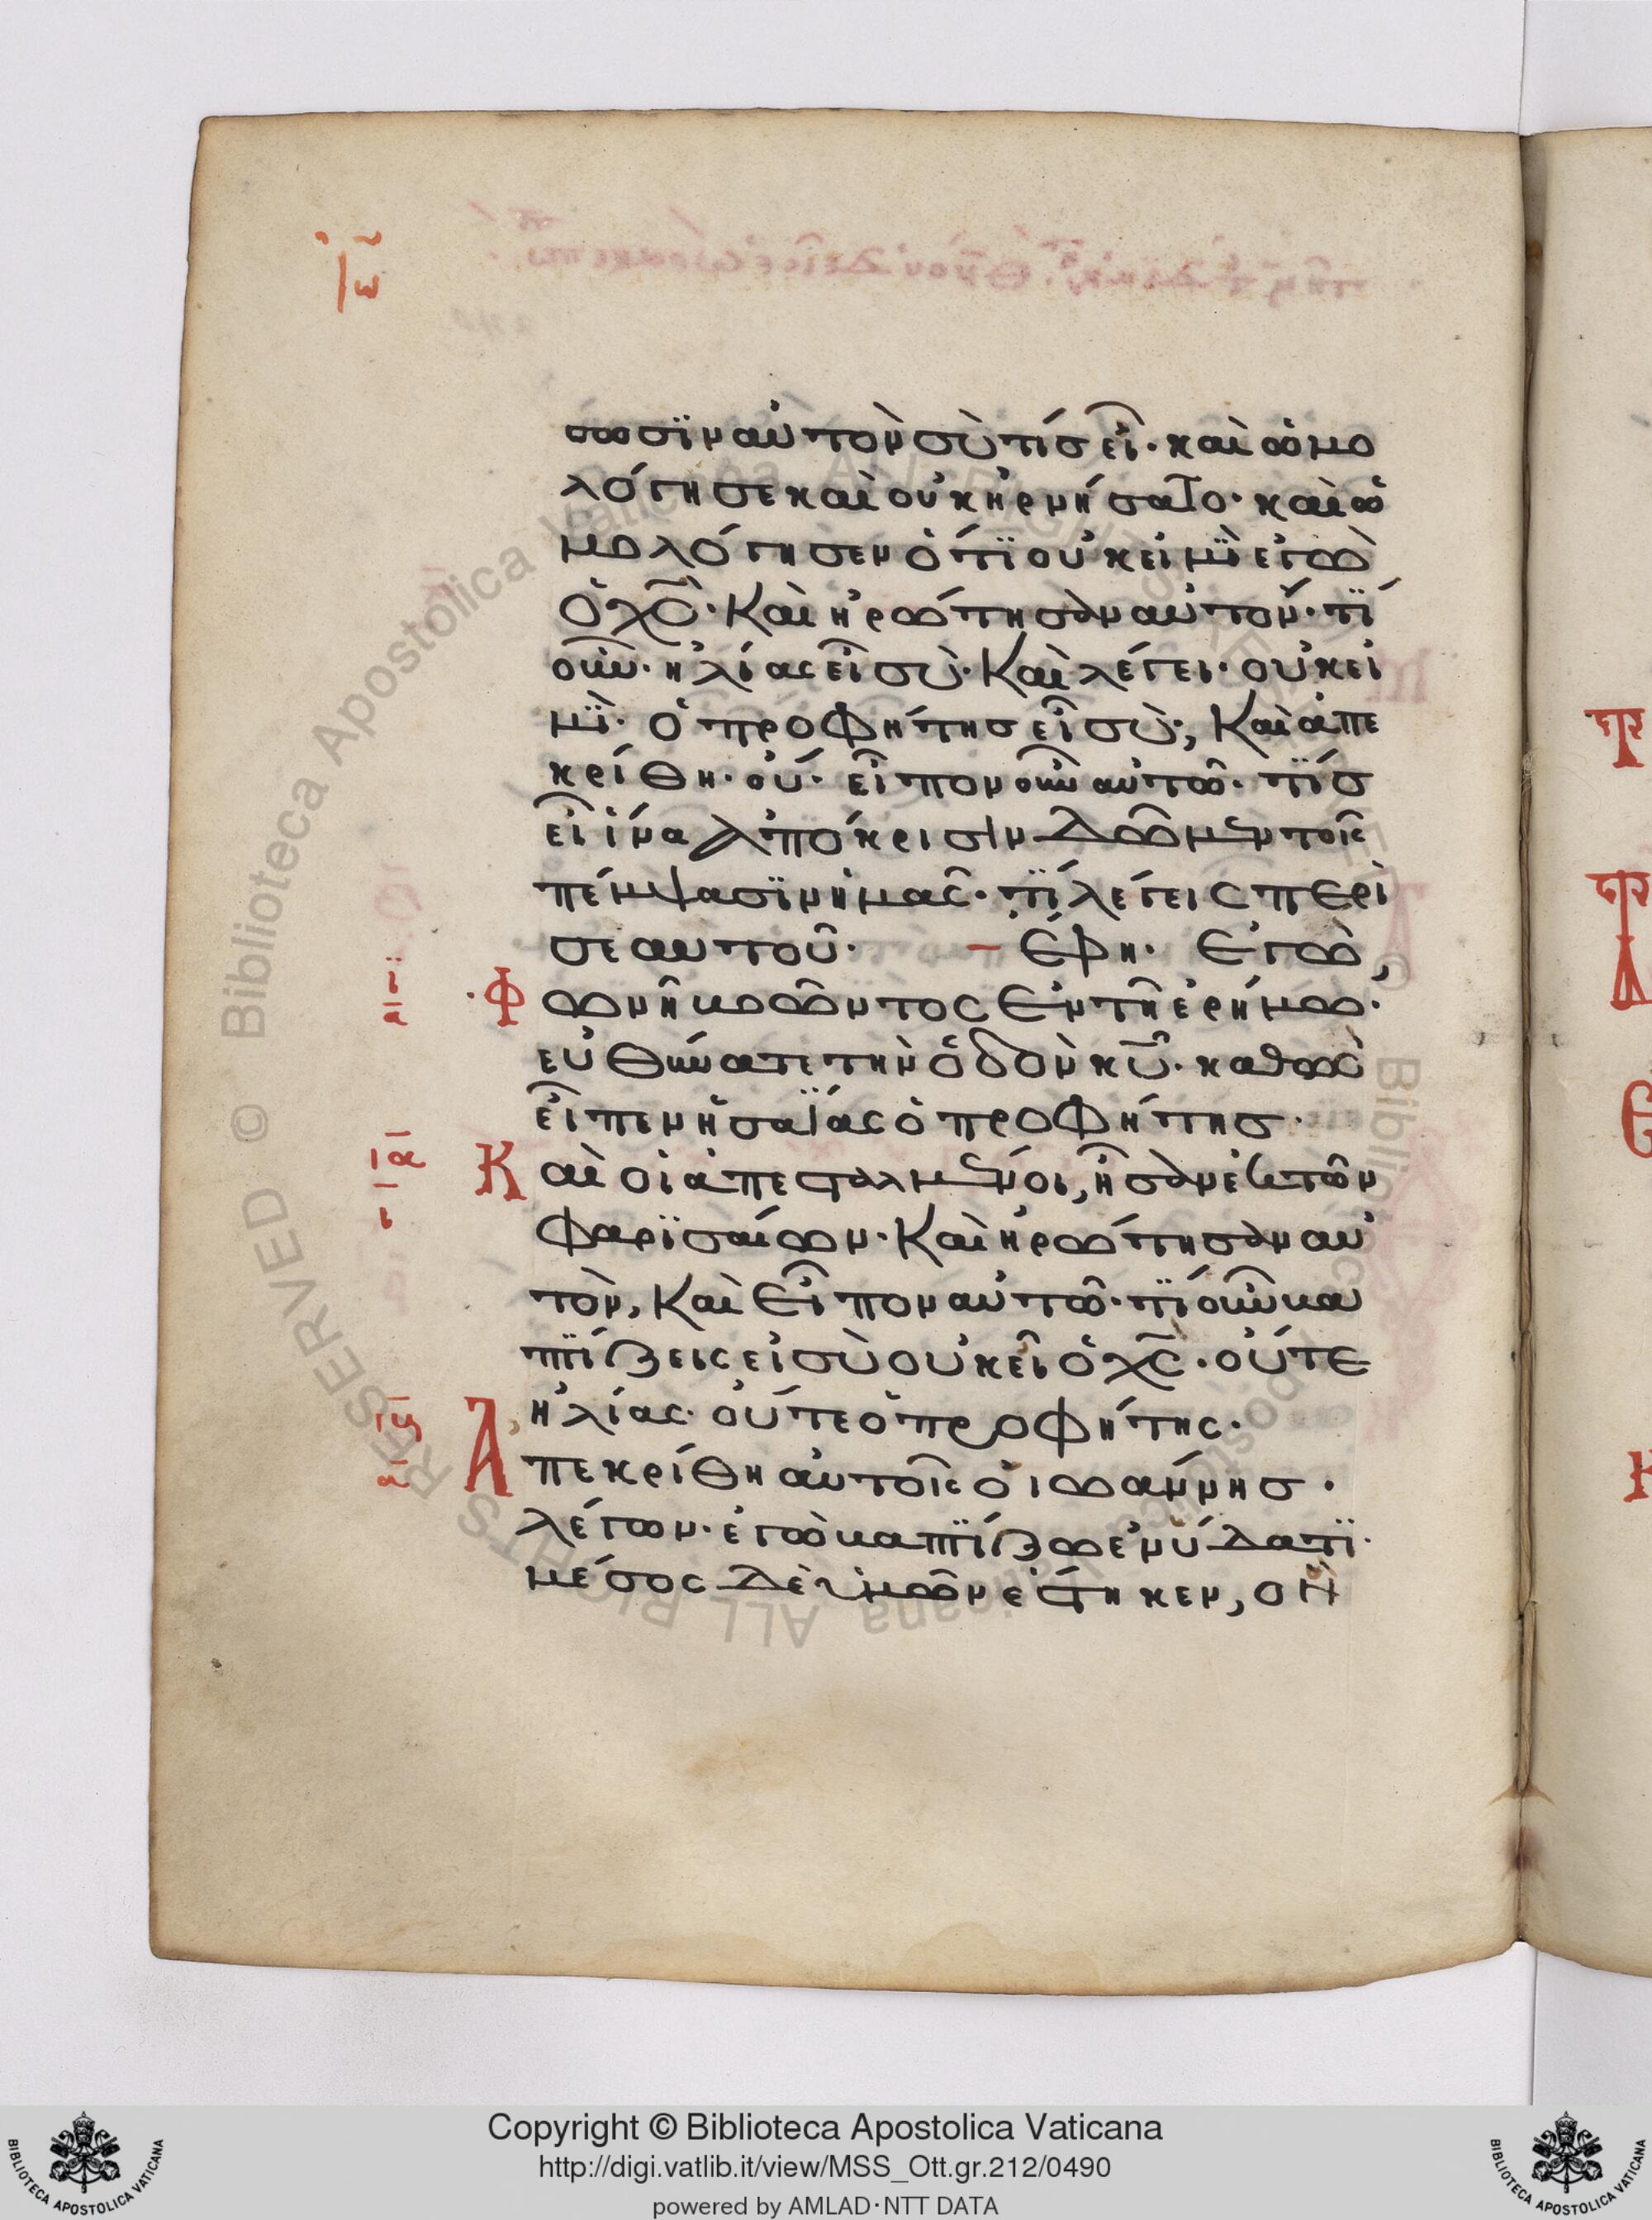 ἸΩ
σωσϊν αὐτὸν σὺ τίς εἶ· καὶ ὡμο
λόγησε καὶ οὐκ ἠρνήσατο· καὶ ὡ
μολόγησεν ὅτϊ οὐκ εἰμῒ ἐγὼ
ὁ χ̅ς̅· Καὶ ἠρώτησαν αὐτόν· τΐ
οὖν· ἠλίας εἶ σὺ· Καὶ λέγει· οὐκ εἰ
μῒ· ὁ προφήτης εἶ σὺ; Καὶ ἀπε
κρίθη· οὔ· εἶπον οὖν αὐτῶ· τΐς
εἶ ἵνα ἀπόκρισιν δῶμεν τοῖς
πέμψασϊν ἡμᾶς· τΐ λέγεις περὶ
σεαυτοῦ· Ἔφη· Ἐγὼ,
Φ ωνὴ βοῶντος ἐν τῆ ἐρήμω·
εὐθύνατε τὴν ὁδὸν κ̅υ̅· καθὼς
εἶπεν ἠσαΐας ὁ προφήτης·
Κ αὶ οἱ ἀπεσταλμένοι, ἦσαν ἐκ τῶν
φαρϊσαίων· Καὶ ἠρώτησαν αὐ
τὸν, Καὶ εἶπον αὐτῶ· τΐ οὖν βα
πτΐζεις εἰ σὺ οὐκ εἶ ὁ χ̅ς̅· οὔτε
ἠλίας· οὔτε ὁ προφήτης·
Ἀ πεκρίθη αὐτοῖς ὁ ἰωάννης·
λέγων· ἐγὼ βαπτΐζω ἐν ὕδατϊ·
μέσος δὲ ὑμῶν ἕστηκεν, ὃν
Copyright © Biblioteca Apostolica Vaticana
http://digi.vatlib.it/view/MSS_Ott.gr.212/0490
powered by AMLAD·NTT DATA